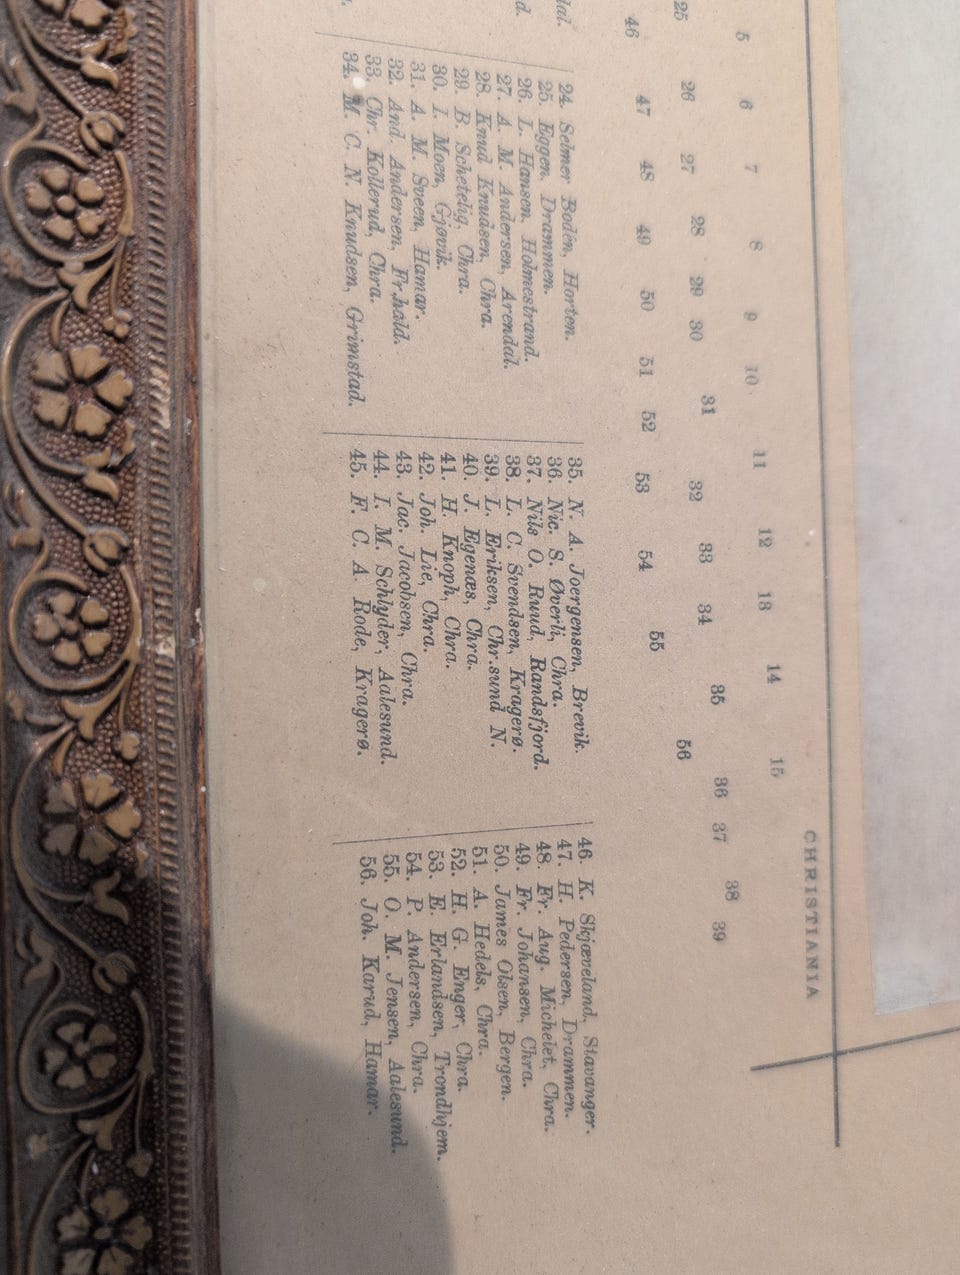 CHRISTIANIA
5 6 7 8 9 10 11 12 13 14 15
25 26 27 28 29 30 31 32 33 34 35 36 37 38 39
46 47 48 49 50 51 52 53 54 55 56
dal.
d.
24. Selmer Boden, Horten.
25. Eggen, Drammen.
26. L. Hansen, Holmestrand.
27. A. M. Andersen, Arendal.
28. Knud Knudsen, Chra.
29. B. Schetelig, Chra.
30. I. Moen, Gjøvik.
31. A. M. Sveen, Hamar.
32. And. Andersen, Fr.hald.
33. Chr. Kollerud, Chra.
34. M. C. N. Knudsen, Grimstad.
35. N. A. Joergensen, Brevik.
36. Nic. S. Øverli, Chra.
37. Nils O. Ruud, Randsfjord.
38. L. C. Svendsen, Kragerø.
39. L. Eriksen, Chr.sund N.
40. J. Egenæs, Chra.
41. H. Knoph, Chra.
42. Joh. Lie, Chra.
43. Jac. Jacobsen, Chra.
44. I. M. Schlyder, Aalesund.
45. F. C. A. Rode, Kragerø.
46. K. Skjæveland, Stavanger.
47. H. Pedersen, Drammen.
48. Fr. Aug. Michelet, Chra.
49. Fr. Johansen, Chra.
50. James Olsen, Bergen.
51. A. Hedels, Chra.
52. H. G. Enger, Chra.
53. E. Erlandsen, Trondhjem.
54. P. Andersen, Chra.
55. O. M. Jensen, Aalesund.
56. Joh. Karud, Hamar.